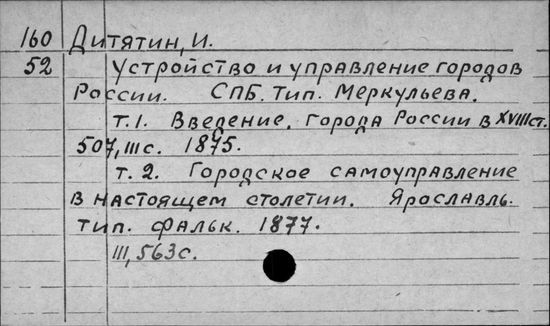 160 Дитятин, И.
52 Устройство и управление городов
России. СПБ. Тип. Меркульева.
т. 1. Введение. Города России в XVIII ст.
507, III с. 1875.
т. 2. Городское самоуправление
в настоящем столетии. Ярославль.
тип. Фальк. 1877.
III, 563 с.